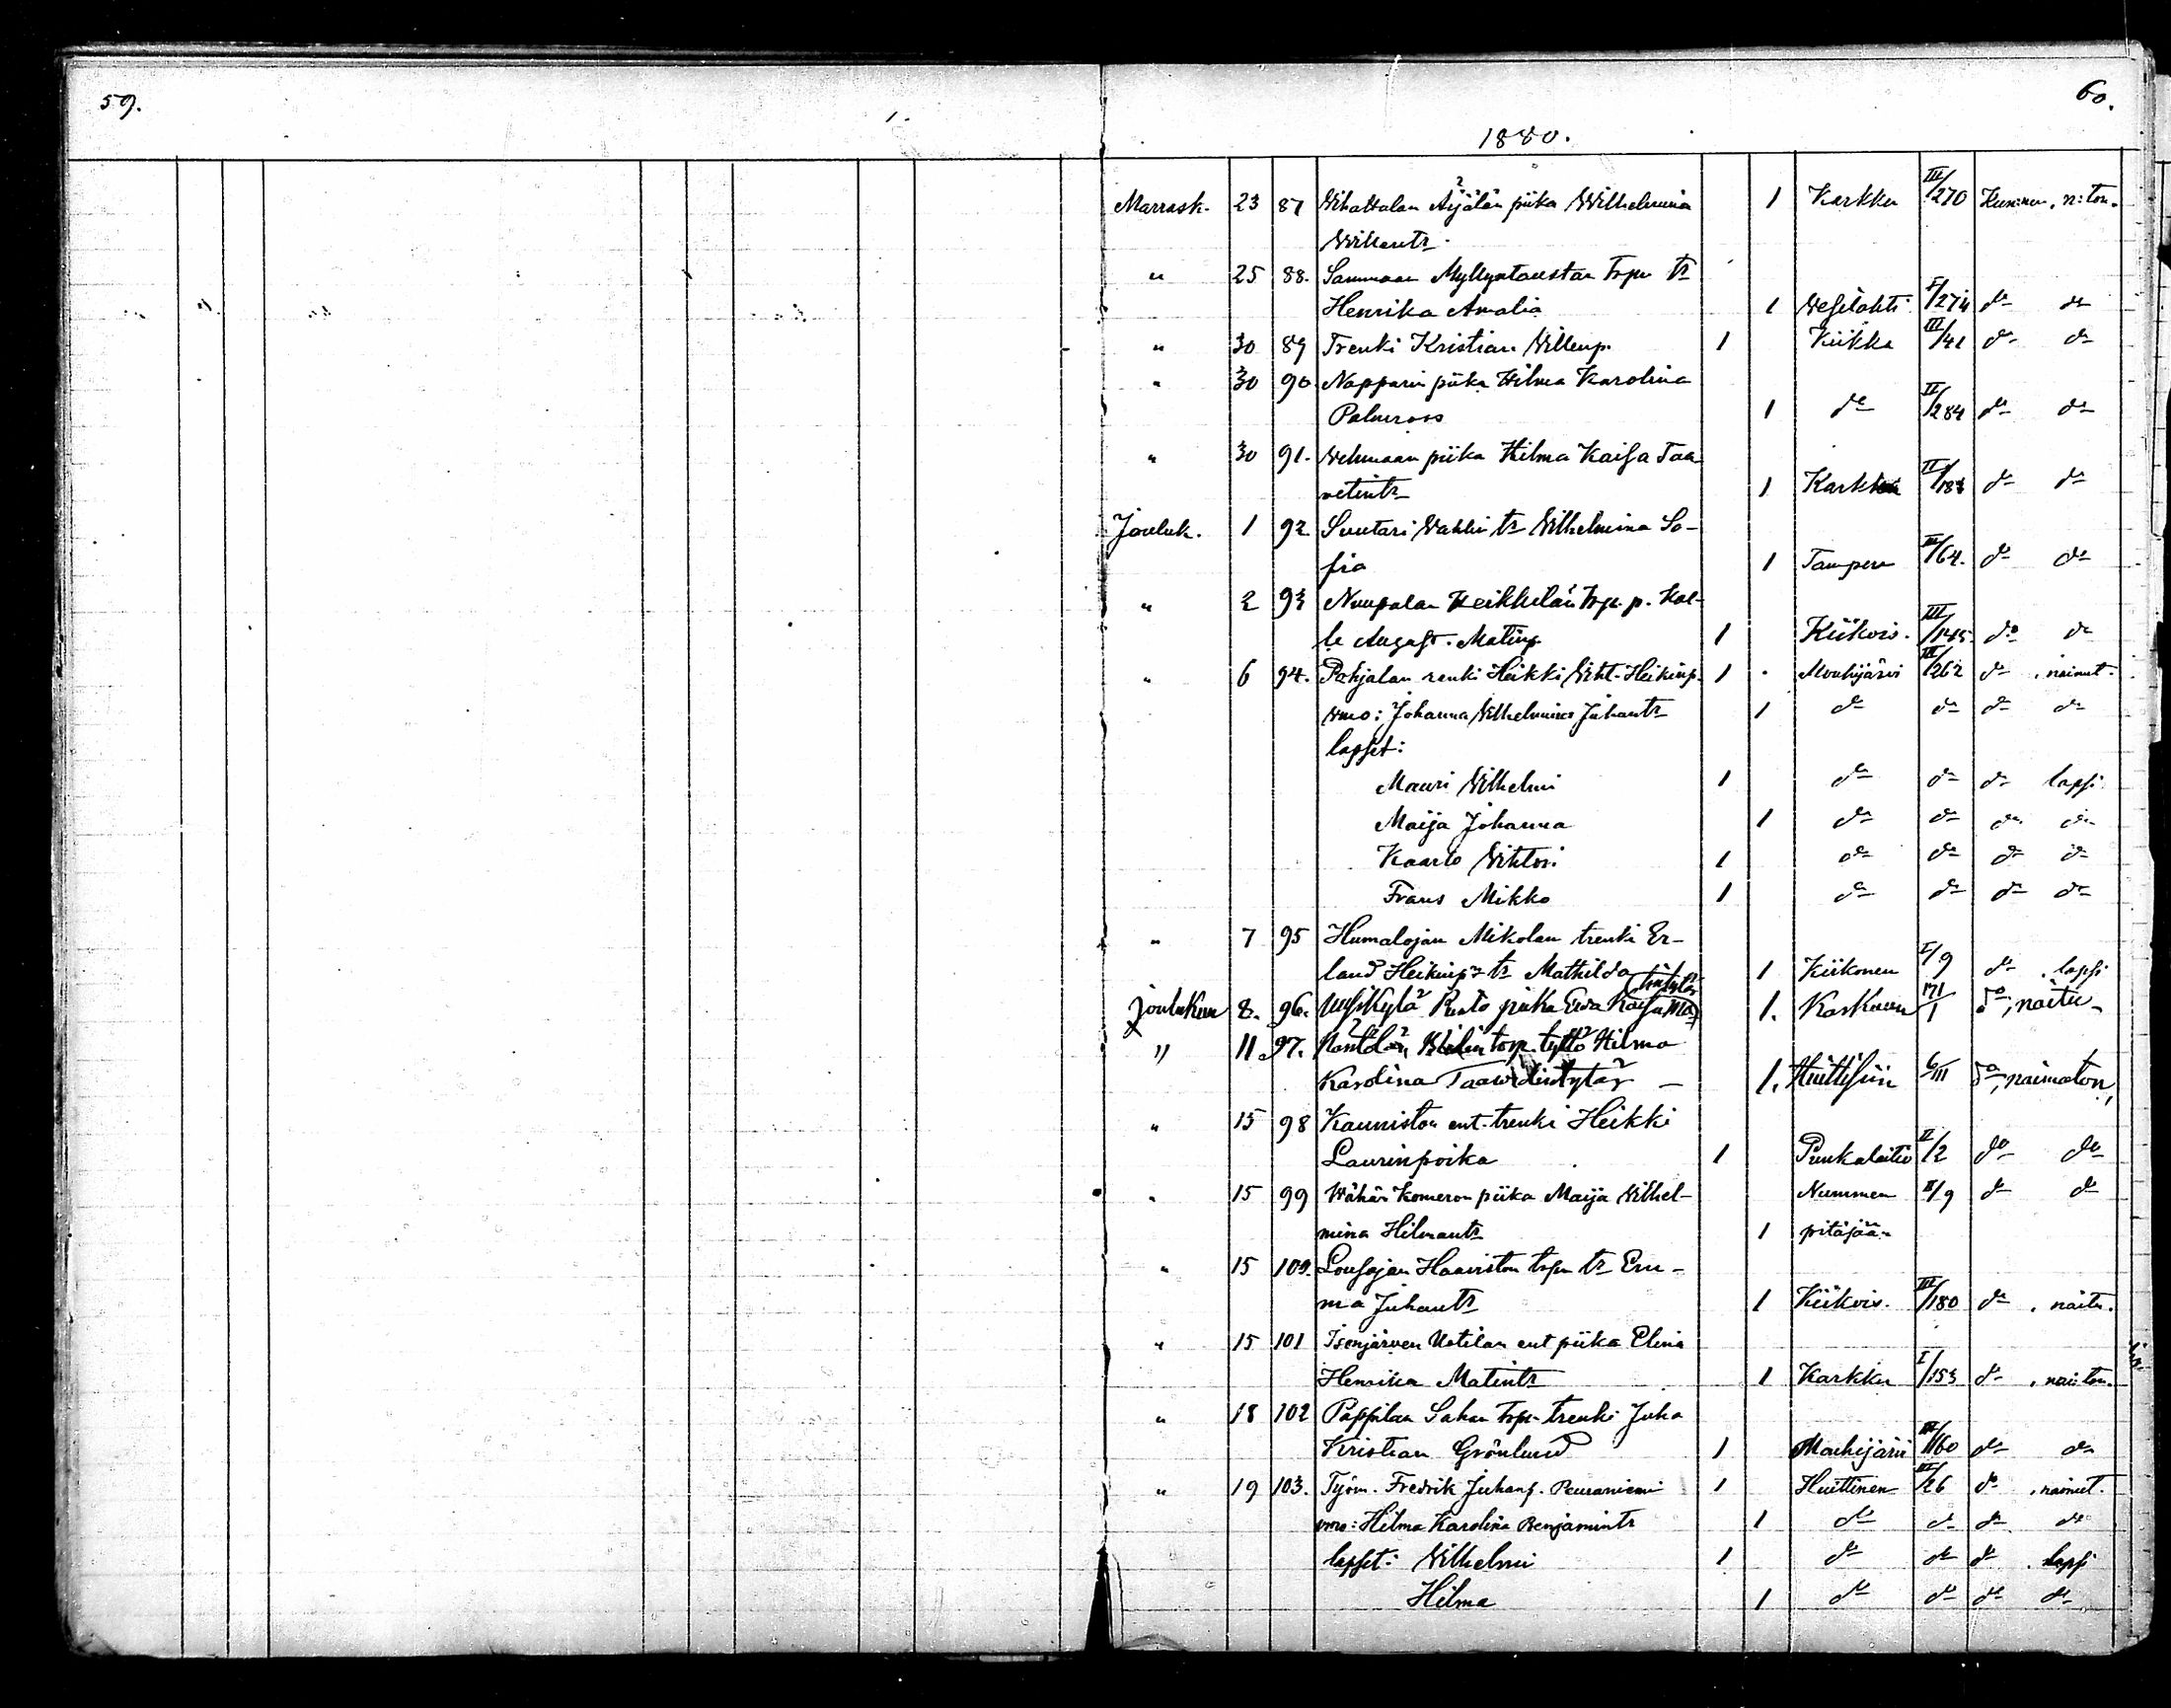 59.
60.
1880.
Marrask. 23 87 Äijälän piika Wilhelmina 1 Karkku III/270 n:ton.
" 25 88. Sammaan Myllyntaustan torp. tr
Henrika Amalia 1 Vesilahti I/274 do do
" 30 89 Trenki Kristian Villenp. 1 Kiikka III/41 do do
" 30 90. Napparin piika Hilma Karolina
Palmroos 1 do II/284 do do
" 30 91. Vehmaan piika Hilma Kaisa Taa-
vetintr 1 Karkku II/183 do do
Jouluk. 1 92 Suutari Vahlin tr Vilhelmina So-
fia 1 Tampere III/64. do do
" 2 93 Nuupalan Heikkilän torp. p. Kal-
le August Matinp. 1 Kiikois. III/145 do do
" 6 94. Pohjalan renki Heikki Viht. Heikinp. 1 Mouhijärvi III/262 do , nainut.
vmo: Johanna Vilhelmina Juhantr 1 do do do do
lapset:
Mauri Vilhelmi 1 do do do lapsi
Maija Johanna 1 do do do do
Kaarlo Vihtori 1 do do do do
Frans Mikko 1 do do do do
" 7 95 Humalojan Mikolan trenki Er-
land Heikinp. tr Mathilda 1 Kiikonen I/9 do . lapsi
Joulukuu 8. 96. Uusikylä Rusto piika Eeva Kaisa Ma-
tintytär 1. Karkkuun 171/I do, naitu
" 11 97. torp. tyttö Hilma
Karolina Taavidintytär 1. Huittisiin 6/III do, naimaton,
" 15 98 Kauniston ent. trenki Heikki
Laurinpoika 1 Punkalaitio II/2 do do
" 15 99 Vähän Komeron piika Maija Vilhel- Nummen II/9 do do
mina Hilmantr 1 pitäjään
" 15 100. Lousajan Haaviston torp. tr Em-
ma Juhantr 1 Kiikois. III/180 do , naitu.
" 15 101 Isonjärven Uotilan ent piika Elina
Henrika Matintr 1 Karkku I/153 do , nai:ton.
" 18 102 Pappilan Sahan torp. trenki Juha
Kristian Grönlund 1 Mouhijärvi III/60 do do
" 19 103. Työm. Fredrik Juhanp. Peuraniemi 1 Huittinen III/26 do , nainut.
vmo: Hilma Karolina Benjamintr 1 do do do do
lapset: Vilhelmi 1 do do do . lapsi
Hilma 1 do do do do